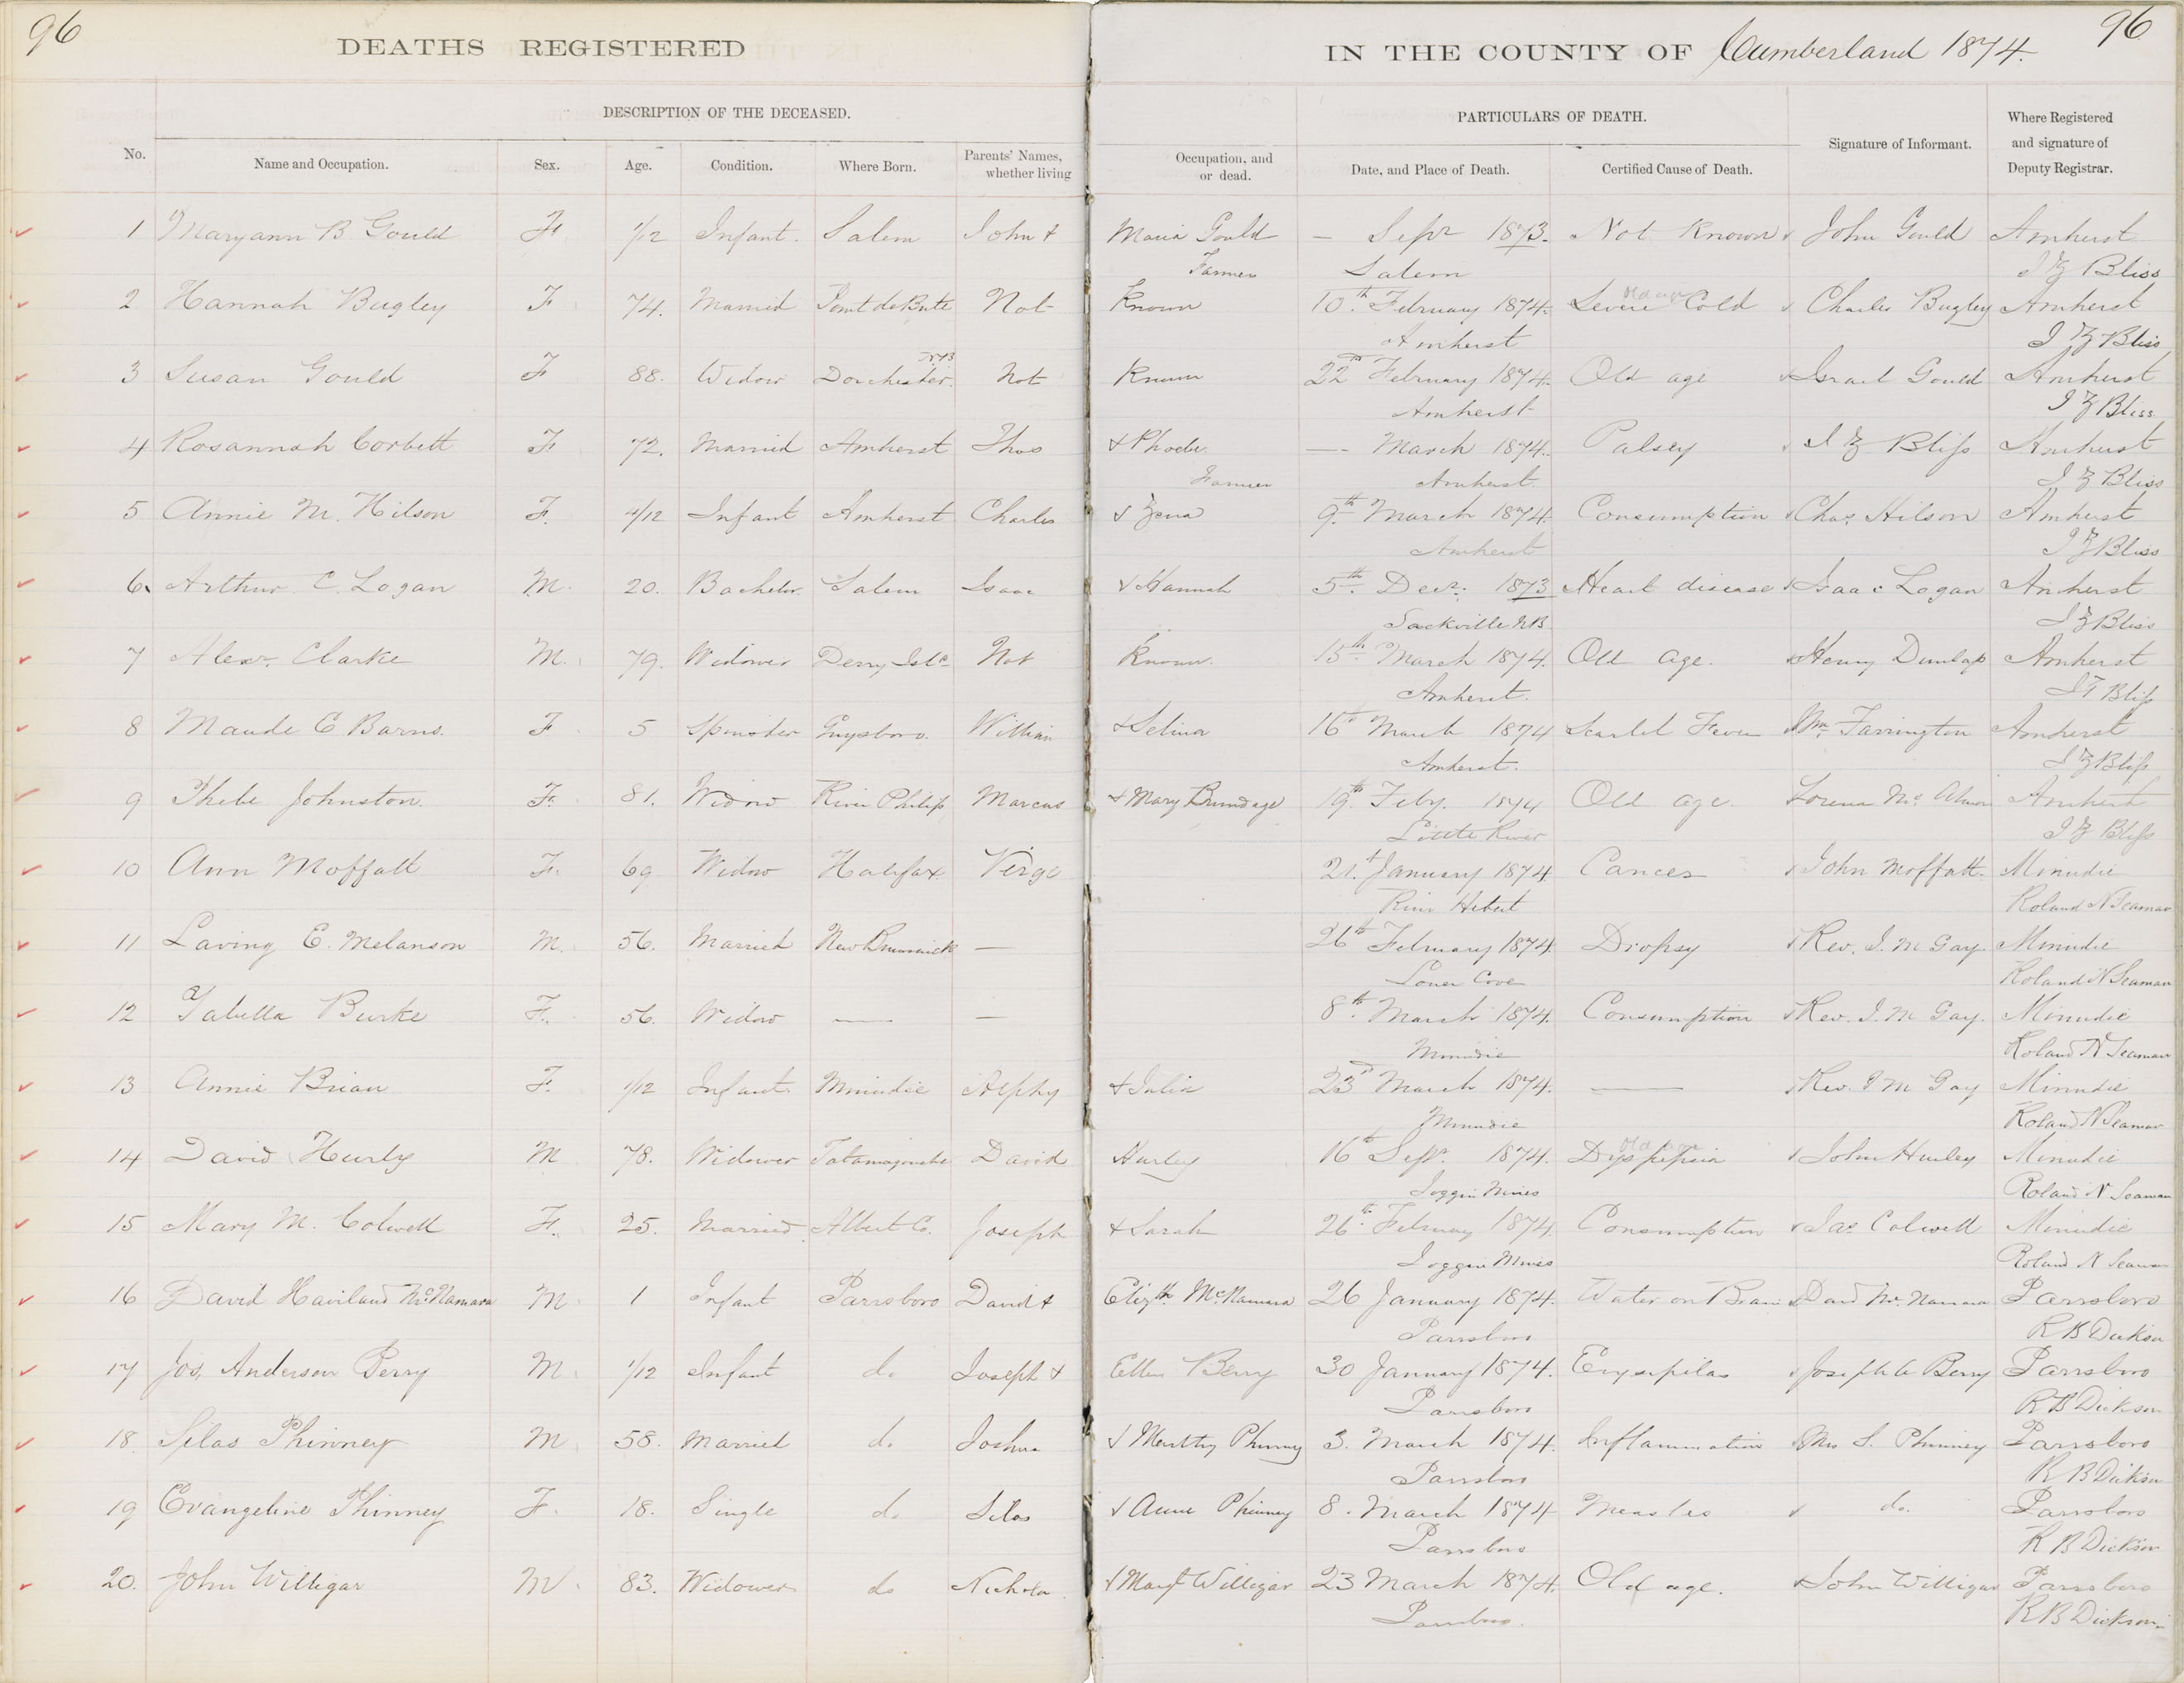 96
DEATHS REGISTERED
IN THE COUNTY OF Cumberland 1874.
96
DESCRIPTION OF THE DECEASED.
PARTICULARS OF DEATH.
No.
Name and Occupation.
Sex.
Age.
Condition.
Where Born.
Parents' Names, whether living
Occupation, and or dead.
Date, and Place of Death.
Certified Cause of Death.
Signature of Informant.
Where Registered and signature of Deputy Registrar.
1 Maryann B Gould F 1/12 Infant. Salem John & Maria Gould — Sepr 1873. Not Known John Gould Amherst
Farmer Salem J Z Bliss
2 Hannah Bugley F 74. Married Point de Bute Not Known 10th February 1874. Old age Severe Cold Charles Bugley Amherst
Amherst J Z Bliss
3 Susan Gould F 88. Widow Dorchester NB Not Known 22nd February 1874. Old age Israel Gould Amherst
Amherst J Z Bliss
4 Rosannah Corbett F 72. Married Amherst Thos & Phoebe — March 1874. Palsey J Z Bliss Amherst
Farmer Amherst J Z Bliss
5 Annie M. Hilson F. 4/12 Infant Amherst Charles & Zena 9th March 1874. Consumption Chas. Hilson Amherst
Amherst J Z Bliss
6. Arthur C. Logan M. 20. Bachelor Salem Isaac & Hannah 5th Decr. 1873 Heart disease Isaac Logan Amherst
Sackville NB. J Z Bliss
7 Alexr. Clarke M. 79. Widower Derry, Ireld Not Known. 15th March 1874. Old age. Henry Dunlap Amherst
Amherst. J Z Bliss
8 Maude E Barns. F 5 Spinster Guysboro. William & Selina 16th March 1874 Scarlet Fever Wm. Farrington Amherst
Amherst. J Z Bliss
9 Phebe Johnston F. 81. Widow River Philip Marcus & Mary Brundage 19th Feby. 1874 Old age Amherst
Little River J Z Bliss
10 Ann Moffatt F. 69 Widow Halifax Verge 21st January 1874 Cancer John Moffatt. Minudie
River Hebert Roland N Seaman
11 Laving E. Melanson M. 56. Married New Brunswick — 26th February 1874. Dropsy Rev. J. M Gay. Minudie
Lower Cove Roland N Seaman
12 Isabella Burke F. 56. Widow — — 8th March 1874. Consumption Rev. J. M Gay. Minudie
Minudie Roland N Seaman
13 Annie Brian F. 1/12 Infant Minudie Alphy & Julia 23d March 1874. — Rev. J M Gay Minudie
Minudie Roland N Seaman
14 David Hurly M 78. Widower Tatamagouche David Hurley 16th Sepr. 1874. Old age Dyspepsia John Hurley Minudie
Joggin Mines Roland N Seaman
15 Mary M. Colwell F. 25. Married Albert Co. Joseph & Sarah 26th February 1874. Consumption Jas Colwell Minudie
Joggin Mines Roland N Seaman
16 David Haviland McNamara M 1 Infant Parrsboro David & Elizth. McNamara 26 January 1874. Water on Brain David McNamara Parrsboro
Parrsboro R B Dickson
17 Jos, Anderson Berry M 1/12 Infant do Joseph & Ellen Berry 30 January 1874. Erysipilas Joseph A Berry Parrsboro
Parrsboro R B Dickson
18. Silas Phinney M 58. Married do Joshua & Phinney 3. March 1874. Inflammation Mrs S. Phinney Parrsboro
Parrsboro R B Dickson
19 Evangeline Phinney F. 18. Single do Silas & Anne Phinney 8. March 1874 Measles do. Parrsboro
Parrsboro R B Dickson
20. John Willigar M. 83. Widower do Nichola & Mary Willigar 23 March 1874. Old age. John Willigar Parrsboro
Parrsboro. R B Dickson